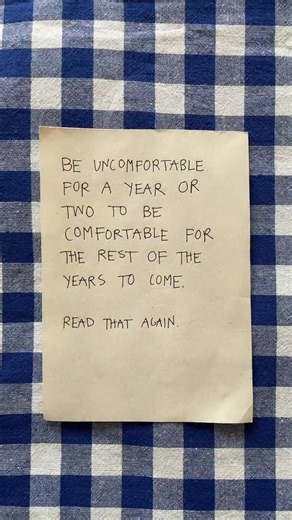 BE UNCOMFORTABLE
FOR A YEAR OR
TWO TO BE
COMFORTABLE FOR
THE REST OF THE
YEARS TO COME.
READ THAT AGAIN.